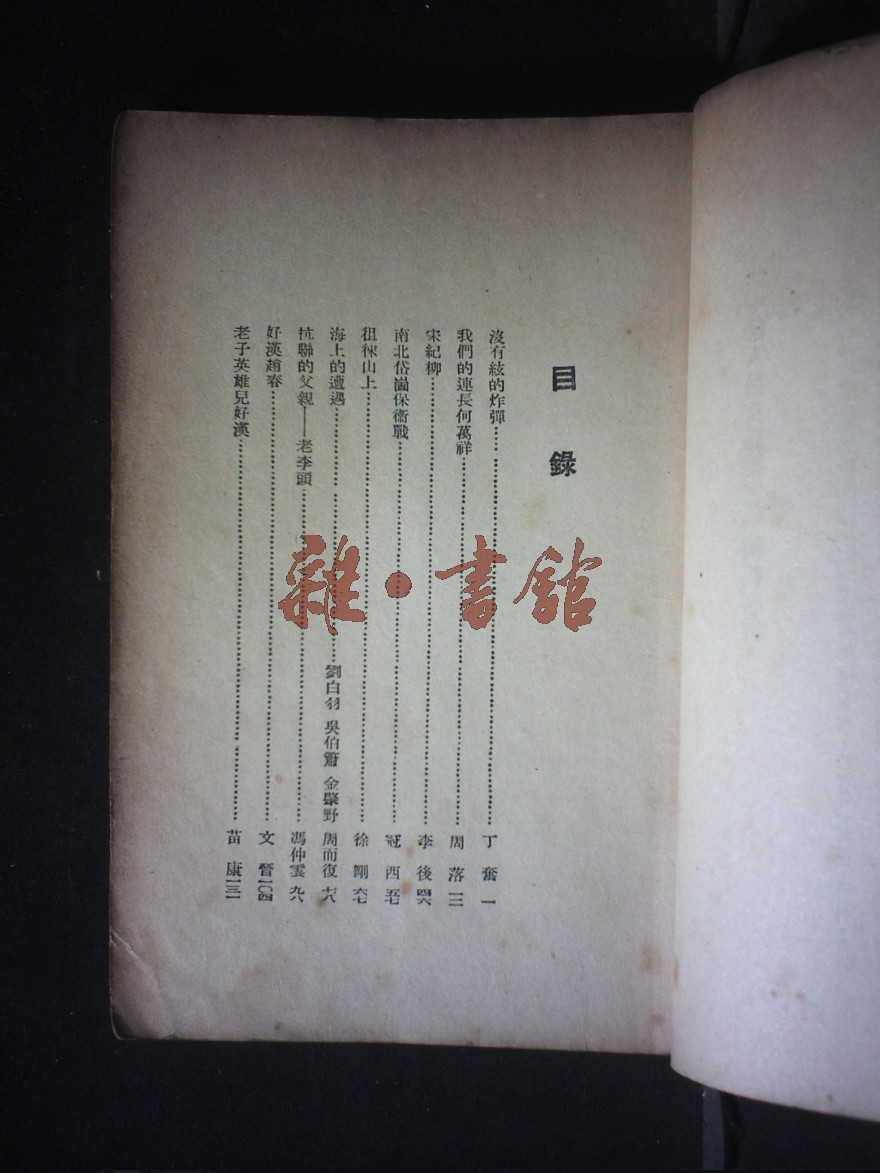 目錄
沒有絃的炸彈……丁奮 一
我們的連長何萬祥……周落 一二
宋紀柳……李後 四六
南北岱崮保衞戰……冠西 五七
徂徠山上……徐剛 六七
海上的遭遇……劉白羽 吳伯簫 金肇野 周而復 七八
抗聯的父親——老李頭……馮仲雲 九六
好漢趙春……文晉 一〇四
老子英雄兒好漢……苗康 一三一
雜·書館